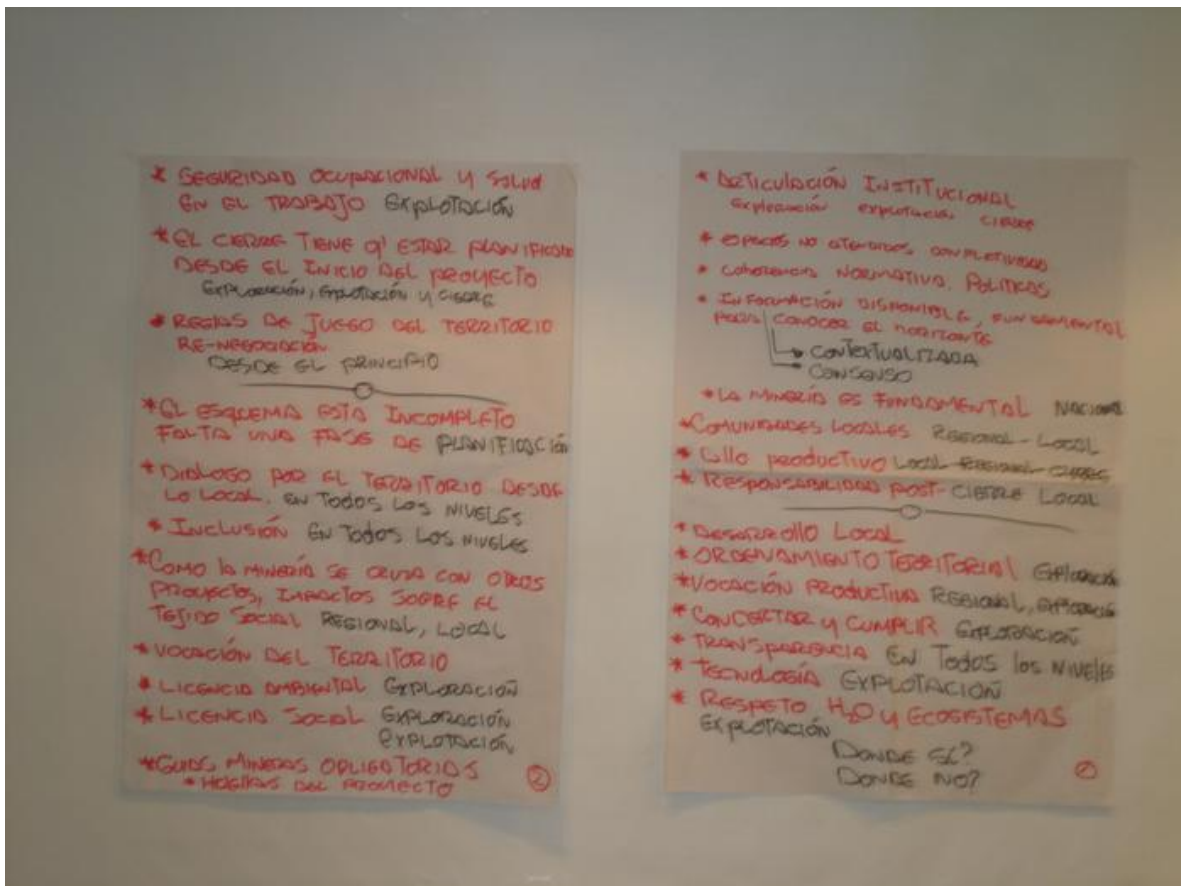 * SEGURIDAD OCUPACIONAL Y SALUD
EN EL TRABAJO EXPLOTACIÓN
* EL CIERRE TIENE Q' ESTAR PLANIFICADO
DESDE EL INICIO DEL PROYECTO
EXPLORACIÓN, EXPLOTACIÓN Y CIERRE
* REGLAS DE JUEGO DEL TERRITORIO
RE-NEGOCIACIÓN
DESDE EL PRINCIPIO
* EL ESQUEMA ESTA INCOMPLETO
FALTA UNA FASE DE PLANIFICACIÓN
* DIALOGO POR EL TERRITORIO DESDE
LO LOCAL, EN TODOS LOS NIVELES
* INCLUSIÓN EN TODOS LOS NIVELES
* COMO LA MINERÍA SE CRUZA CON OTROS
PROYECTOS, IMPACTOS SOBRE EL
TEJIDO SOCIAL REGIONAL, LOCAL
* VOCACIÓN DEL TERRITORIO
* LICENCIA AMBIENTAL EXPLORACIÓN
* LICENCIA SOCIAL EXPLORACIÓN
EXPLOTACIÓN
* GUIAS MINERAS OBLIGATORIAS
* DEL PROYECTO
2
* ARTICULACIÓN INSTITUCIONAL
Exploración explotación cierre
* ESPACIOS NO ATENDIDOS,
* COHERENCIA NORMATIVA. POLITICAS
* INFORMACIÓN DISPONIBLE, FUNDAMENTAL
PARA CONOCER EL HORIZONTE
CONTEXTUALIZADA
CONSENSO
* LA MINERÍA ES FUNDAMENTAL NACIONAL
* COMUNIDADES LOCALES REGIONAL-LOCAL
* PRODUCTIVO LOCAL REGIONAL
* RESPONSABILIDAD POST-CIERRE LOCAL
* DESARROLLO LOCAL
* ORDENAMIENTO TERRITORIAL EXPLORACIÓN
* VOCACIÓN PRODUCTIVA REGIONAL,
* CONCERTAR Y CUMPLIR EXPLORACIÓN
* TRANSPARENCIA EN TODOS LOS NIVELES
* TECNOLOGÍA EXPLOTACIÓN
* RESPETO H₂O Y ECOSISTEMAS
EXPLOTACIÓN
DONDE SI?
DONDE NO?
1